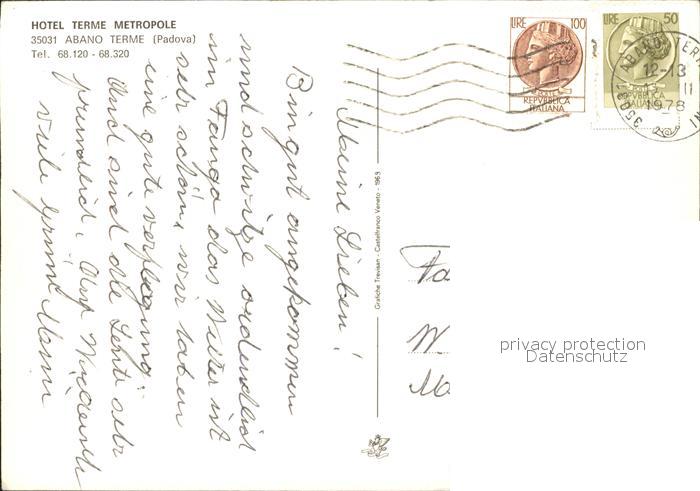 HOTEL TERME METROPOLE
35031 ABANO TERME (Padova)
Tel. 68.120 - 68.320
Meine Lieben!
Bin gut angekommen
und schwitze ordendlich
im Fango das Wetter ist
sehr schön, wir haben
eine gute verflegung
Und sind die Leute sehr
freundlich, Auf Wiederseh
viele Grüsse Mami
Grafiche Trevisan - Castelfranco Veneto - 1969
LIRE 100
REPVBBLICA
ITALIANA
LIRE 50
REPVBBLICA
ITALIANA
35031 ABANO TERME
12-13
11
1978
Fa
W
Mo
privacy protection
Datenschutz